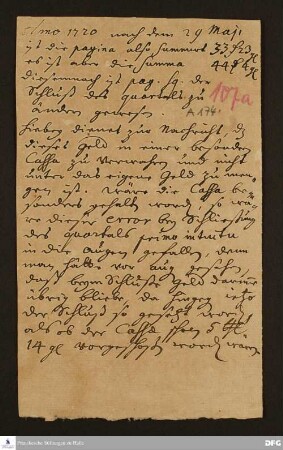 Anno 1720 nach dem 29 Maji
ist die pagina also summirt 33 f 23 gl
es ist aber die summa 44 f 4 gl
diesemnach ist pag. sq. der
Schluß des quartals zu
ändern gewesen.
107a
A 174.
hieben dienet zur Nachricht, dz
dieses Geld in einer besondern
Cassa zu verwahren und nicht
unter das eigene Geld zu men-
gen ist. wäre die Cassa be-
sonders gehalten worden, so wä-
re dieser error bey Schließung
des quartals primo intuitu
in die augen gefallen, denn
man hätte vor aug gesehen,
das beym Schluße Geld darinne
übrig bliebe, da hingegen
der Schluß so gesetzt worden
als ob der Cassa
14 gl vorgeschoßen worden wären
DFG